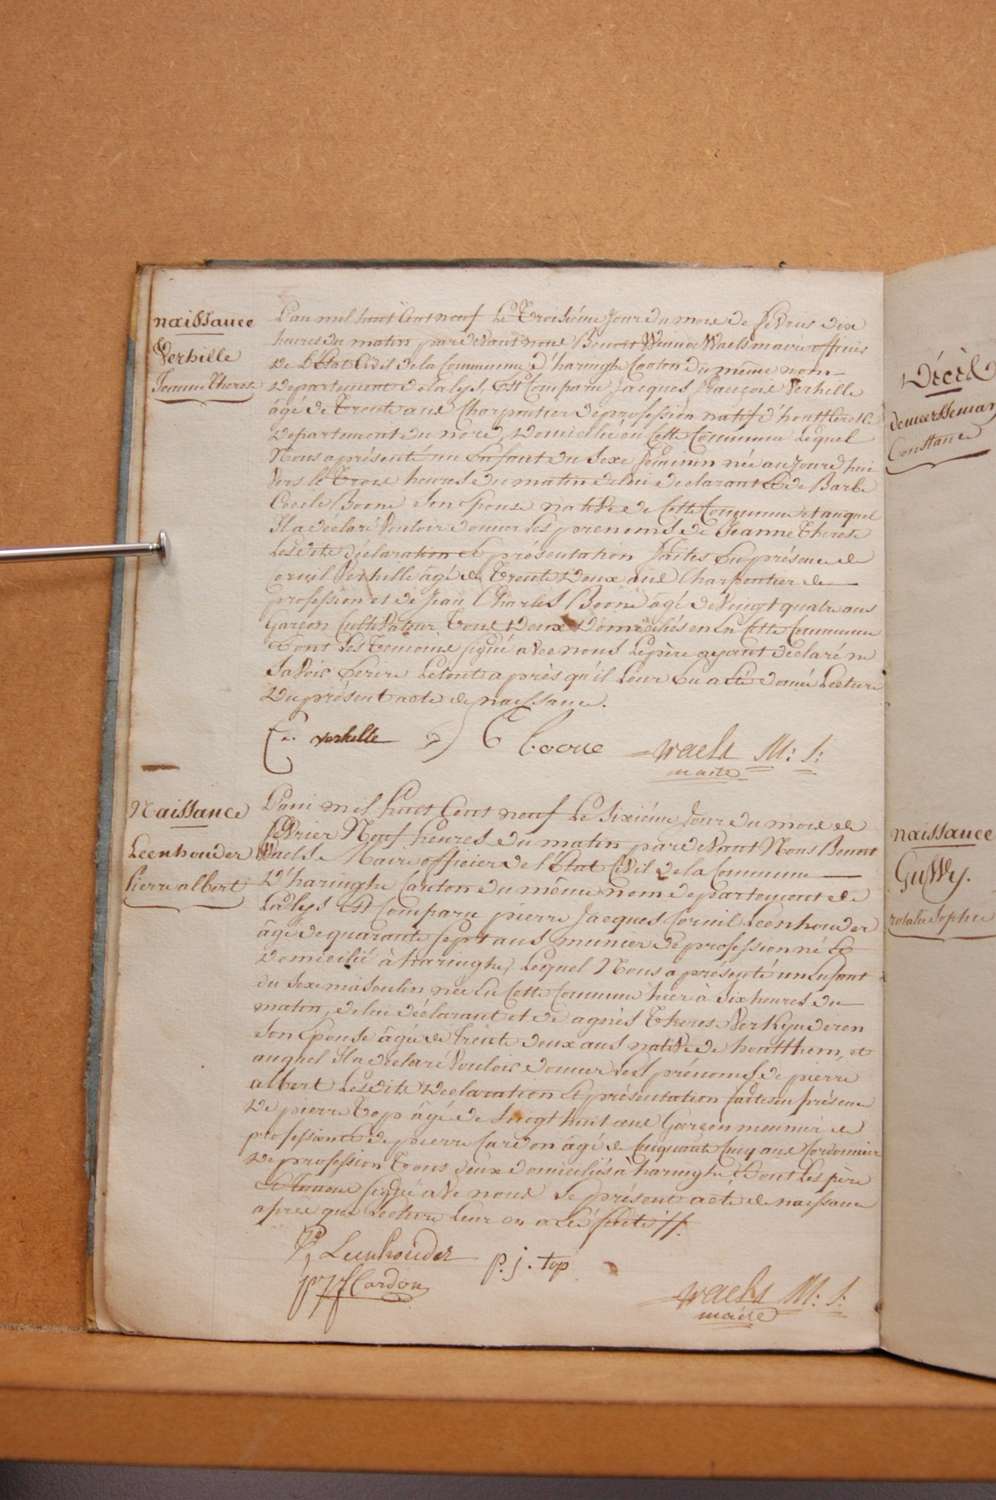 naissance
Verhille
Jeanne Therese
L'an mil huit Cent neuf Le Troisième Jour du mois de fevrier dix
heures du matin pardevant nous Benoit Winnoc Waels maire officier
de l'Etat Civil de la Commune d'haringhe Canton du même nom
Departement de la Lys Est Comparu Jacques françois Verhille
âgé de Trente ans Charpentier de profession natif d'
Departement du nord, Domicilié en Cette Commune Lequel
Nous a présenté un Enfant du Sexe féminin née aujourd'hui
vers les Trois heures du matin de lui déclarant et de Barbe
Cecile Boone Son Epouse native de Cette Commune et auquel
Il a déclaré Vouloir donner les prenoms de Jeanne Therese
Lesdite déclaration et présentation faites En présence de
Verhille âgé de Trente Deux ans Charpentier de
profession et de Jean Charles Boone âgé de Vingt quatre ans
Garçon Cultivateur Tous Deux Domiciliés en Cette Commune
Dont Les Temoins signé avec nous Le père ayant déclaré ne
Savoir Ecrire Le tout après qu'il Leur En a été donné Lecture
Du présent acte de naissance.
verhille
C boone
Waels M: S:
maire
Naissance
Leenhouder
Pierre albert
L'an mil huit Cent neuf Le Sixième Jour du mois de
fevrier Neuf heures du matin pardevant Nous Benoit
Waels Maire officier de l'Etat Civil de la Commune
D'haringhe Canton du même nom departement de
La Lys Est Comparu pierre Jacques Cornil Leenhouder
âgé de quarante Sept ans munier de profession né Et
Domicilié à haringhe, Lequel Nous a présenté un Enfant
du Sexe masculin née En Cette Commune hier à Six heures du
matin, de lui déclarant et de agnès Therese
Son Epouse âgée de trente deux ans native de houtthem, et
auquel Il a déclaré Vouloir donner Les prénoms de pierre
albert Lesdite Déclaration Et présentation faites en présence
De pierre Top âgé de Vingt huit ans Garçon meunier de
profession et de pierre Cardon âgé de Cinquante Cinq ans Cordonnier
De profession Tous deux domiciliés à haringhe Dont Les père
Et temoins signé avec nous Le présent acte de naissance
après que Lecture Leur En a été faite
Leenhouder
p. j. top
Cardon
Waels M: S:
maire
Décès
demeersseman
Constance
naissance
Gussey.
rosalie Sophie